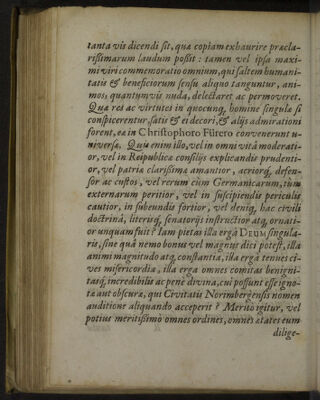 tanta vis dicendi sit, quæ copiam exhaurire præcla-
rissimarum laudum possit : tamen vel ipsa maxi-
mi viri commemoratio omnium, qui saltem humani-
tatis & beneficorum sensu aliquo tanguntur, ani-
mos, quantumvis nuda, delectaret ac permoveret.
Quæ res ac virtutes in quocunq; homine singulæ si
conspicerentur, satis & ei decori, & alijs admirationi
forent, eæ in Christophoro Fürero convenerunt u-
niversæ. Quis enim illo, vel in omni vitâ moderati-
or, vel in Reipublicæ consilijs explicandis prudenti-
or, vel patriæ clarissimæ amantior, acriorq; defen-
sor ac custos, vel rerum cùm Germanicarum, tùm
externarum peritior, vel in suscipiendis periculis
cautior, in subeundis fortior, vel deniq; hac civili
doctrinâ, literisq; senatorijs instructior atq; ornati-
or unquam fuit? Iam pietas illa ergà DEUM singula-
ris, sine quâ nemo bonus vel magnus dici potest, illa
animi magnitudo atq; constantia, illa ergà tenues ci-
ves misericordia, illa ergà omnes comitas benigni-
tasq; incredibilis ac penè divina, cui possunt esse igno-
ta aut obscura, qui Civitatis Norimbergensis nomen
auditione aliquando acceperit? Meritò igitur, vel
potius meritissimò omnes ordines, omnes ætates eum
dilige-